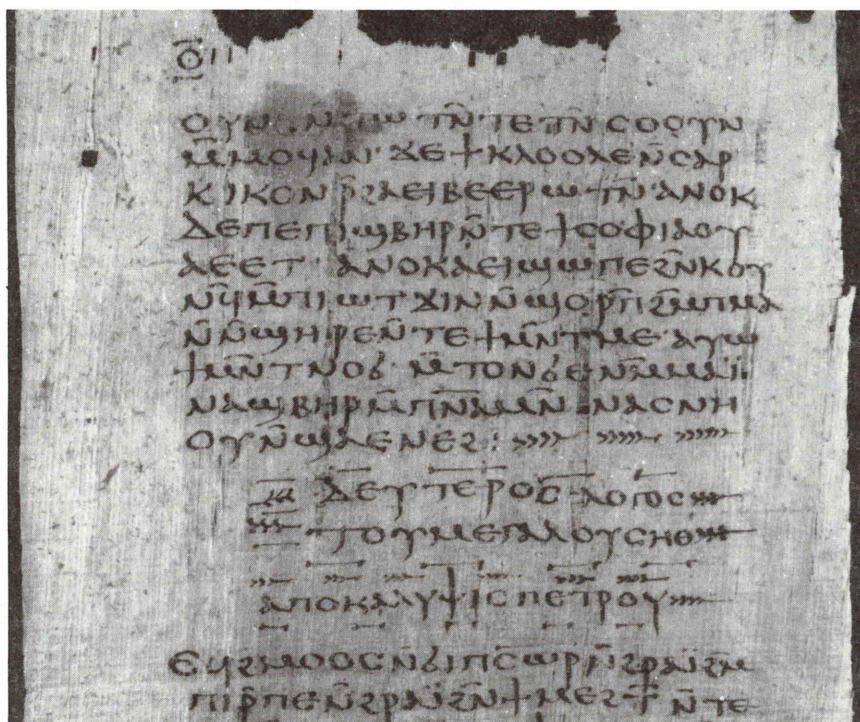 ⲟ̄
ⲧⲛ̄ⲧⲉⲧⲛ̄ⲥⲟⲟⲩⲛ
ⲙ̄ⲙⲟϥⲁⲛ· ϫⲉϯⲕⲗⲟⲟⲗⲉⲛ̄ⲥⲁⲣ
ⲕⲓⲕⲟⲛⲣ̄ϩⲁⲉⲓⲃⲉⲉⲣⲱⲧⲛ̄· ⲁⲛⲟⲕ
ⲇⲉⲡⲉⲡⲓϣⲃⲏⲣⲛ̄ⲧⲉϯⲥⲟⲫⲓⲁⲟⲩ
ⲁⲉⲉⲧ· ⲁⲛⲟⲕⲁⲉⲓϣⲱⲡⲉϩⲛ̄ⲕⲟⲩ
ⲛ̄ϥⲙ̄ⲡⲓⲱⲧϫⲓⲛⲛ̄ϣⲟⲣⲡ̄ϩⲙ̄ⲡⲙⲁ
ⲛ̄ⲛ̄ϣⲏⲣⲉⲛ̄ⲧⲉϯⲙⲛ̄ⲧⲙⲉⲁⲩⲱ
ϯⲙⲛ̄ⲧⲛⲟϭ· ⲙ̄ⲧⲟⲛϭⲉⲛⲙ̄ⲙⲁⲓ̈·
ⲛⲁϣⲃⲏⲣⲙ̄ⲡⲛ̄ⲁ̄ⲙⲛ̄ⲛⲁⲥⲛⲏ
ⲟⲩⲛ̄ϣⲁⲉⲛⲉϩ:
ⲇⲉⲩⲧⲉⲣⲟⲥ ⲗⲟⲅⲟⲥ
ⲧⲟⲩⲙⲉⲅⲁⲗⲟⲩⲥⲏⲑ
ⲁⲡⲟⲕⲁⲗⲩⲯⲓⲥⲡⲉⲧⲣⲟⲩ
ⲉϥϩⲙⲟⲟⲥⲛ̄ϭⲓⲡⲥⲱⲣ̄ⲛ̄ϩⲣⲁⲓ̈ϩⲙ̄
ⲡⲓⲣ̄ⲡⲉⲛ̄ϩⲣⲁⲓ̈ϩⲛ̄ϯⲙⲉϩⲧ̄ⲛ̄ⲧⲉ